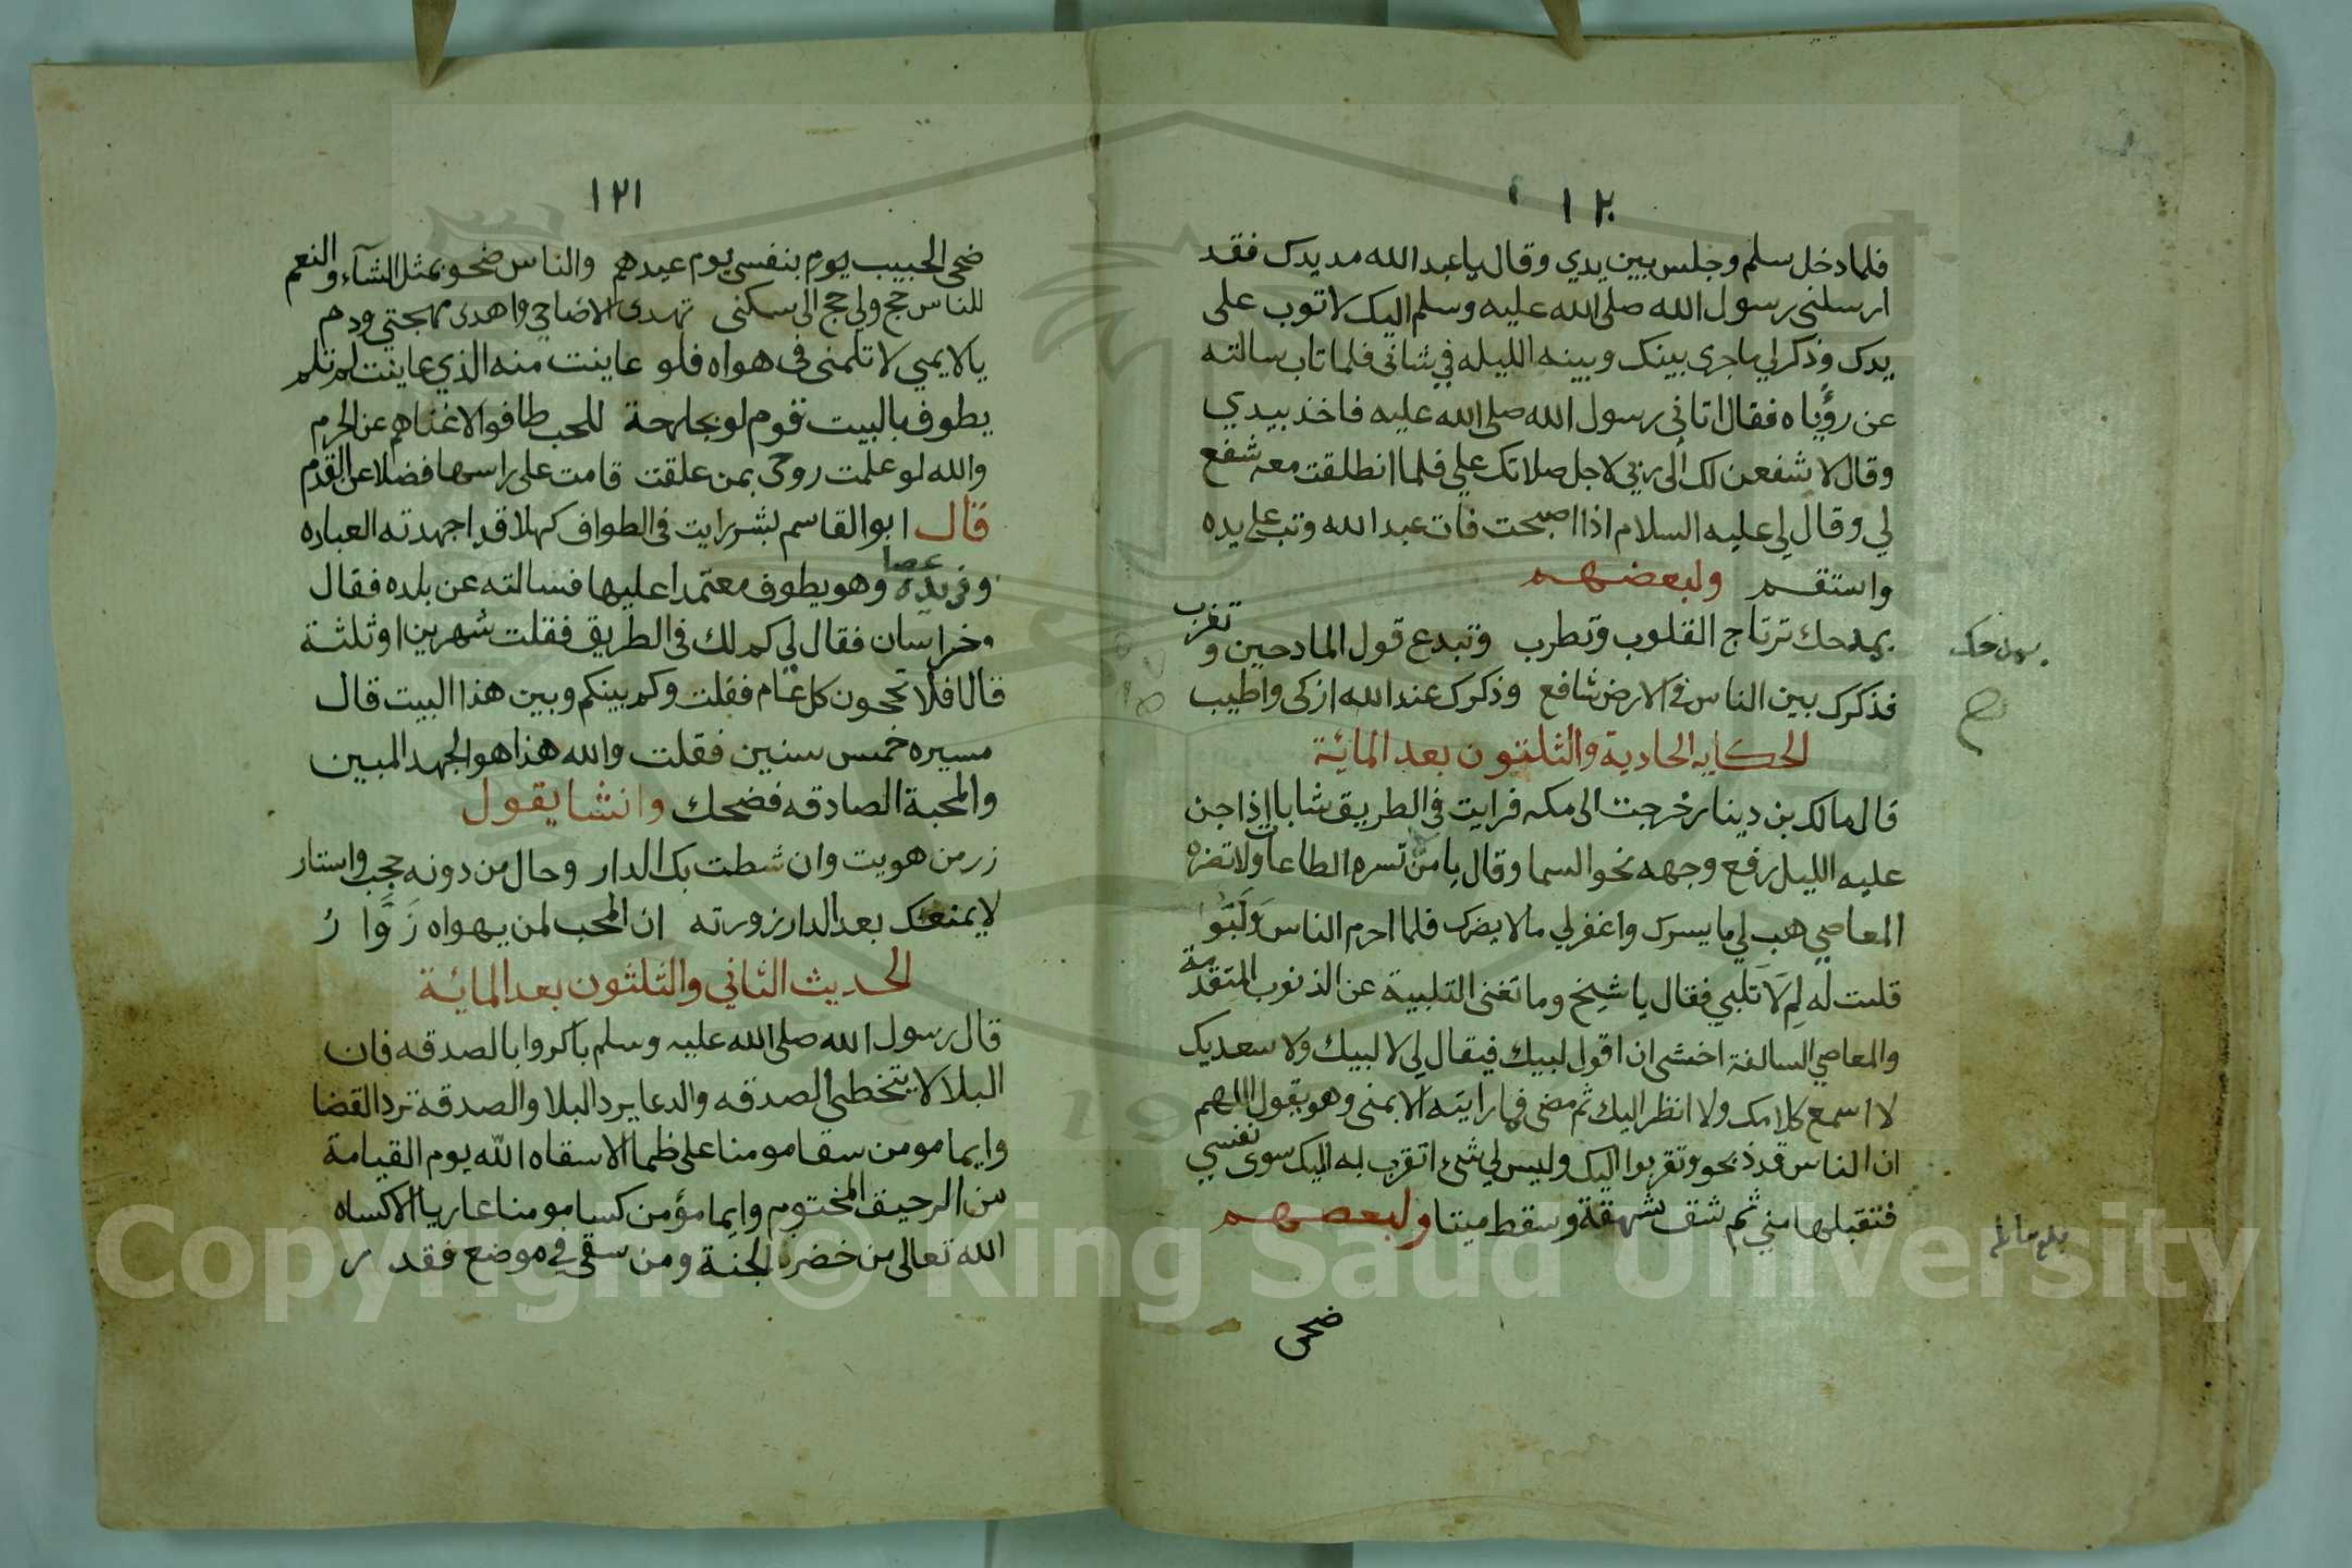 ١٢٠
فلما دخل سلم وجلس بين يدي وقال يا عبد الله مد يدك فقد
ارسلني رسول الله صلى الله عليه وسلم اليك لاتوب على
يدك وذكر لي ما جرى بينك وبينه الليله في شاني فلما تاب سالته
عن رؤياه فقال اتاني رسول الله صلى الله عليه فاخذ بيدي
وقال لاشفعن لك الى ربي لاجل صلاتك علي فلما انطلقت معه شفع
لي وقال لي عليه السلام اذا اصبحت فات عبد الله وتب على يده
واستقم ولبعضهم
بمدحك ترتاج القلوب وتطرب وتبدع قول المادحين وتغرب
بمدحك
فذكرك بين الناس في الارض شافع وذكرك عند الله ازكى واطيب
الحكايه الحادية والثلثون بعد المائة
قال مالك بن دينار خرجت الى مكه فرايت في الطريق شابا إذا جن
عليه الليل رفع وجهه نحو السما وقال يا من تسره الطاعات ولا تضره
المعاصي هب لي ما يسرك واغفر لي ما لا يضرك فلما احرم الناس وَلَبَّوْا
قلت له لِمَ لَا تلبي فقال يا شيخ وما تغني التلبية عن الذنوب المتقدمة
والمعاصي السالفة اخشى ان اقول لبيك فيقال لي لا لبيك ولا سعديك
لا اسمع كلامك ولا انظر اليك ثم مضى فما رايته الا بمنى وهو يقول اللهم
ان الناس قد ذبحو وتقربوا اليك وليس لي شئ اتقرب به اليك سوى نفسي
فتقبلها مني ثم شق شهقة وسقط ميتا ولبعضهم
ضحى
١٢١
ضحى الحبيب يوم بنفسي يوم عيدهم والناس ضحو بمثل الشآء والنعم
للناس حج ولي حج الى سكني تهدى الاضاحي واهدى مهجتي ودم
يا لايمي لا تلمني في هواه فلو عاينت منه الذي عاينت لم تلم
يطوف بالبيت قوم لو بجارحة للحب طافوا لاغناهم عن الحرم
والله لو علمت روحى بمن علقت قامت على راسها فضلا عن القدم
قال ابو القاسم بشر رايت في الطواف كهلا قد اجهدته العباده
وفي يده عصا وهو يطوف معتمدا عليها فسالته عن بلده فقال
وخراسان فقال لي كم لك في الطريق فقلت شهرين او ثلثة
قال افلا تحجون كل عام فقلت وكم بينكم وبين هذا البيت قال
مسيره خمس سنين فقلت والله هذا هو الجهد المبين
والمحبة الصادقه فضحك وانشا يقول
زر من هويت وان شطت بك الدار وحال من دونه حجب واستار
لا يمنعنك بعد الدار زورته ان المحب لمن يهواه زَوَّا رُ
الحديث الثاني والثلثون بعد المائة
قال رسول الله صلى الله عليه وسلم باكروا بالصدقه فان
البلا لا يتخطى الصدقه والدعا يرد البلا والصدقة ترد القضا
وايما مومن سقا مومنا على ظما الا سقاه الله يوم القيامة
من الرحيق المختوم وايما مؤمن كسا مومنا عاريا الا كساه
الله تعالى من خضر الجنة ومن سقى في موضع فقد
Copyright © King Saud University